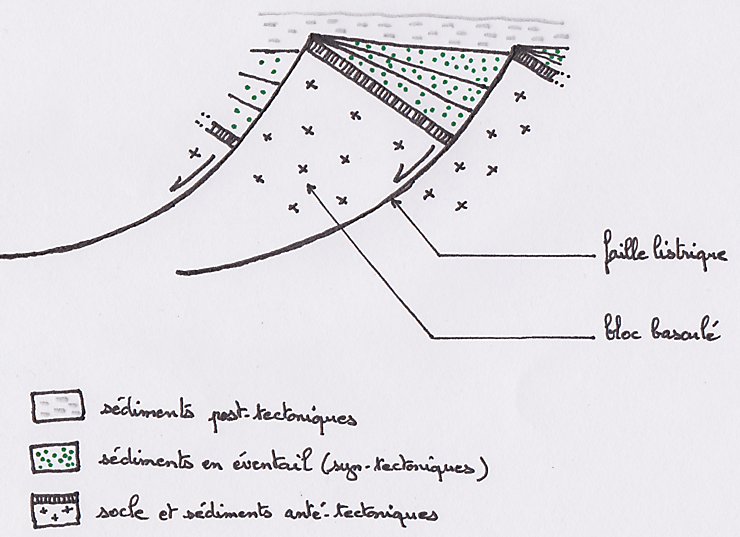 faille listrique
bloc basculé
sédiments post-tectoniques
sédiments en éventail (syn-tectoniques)
socle et sédiments anté-tectoniques